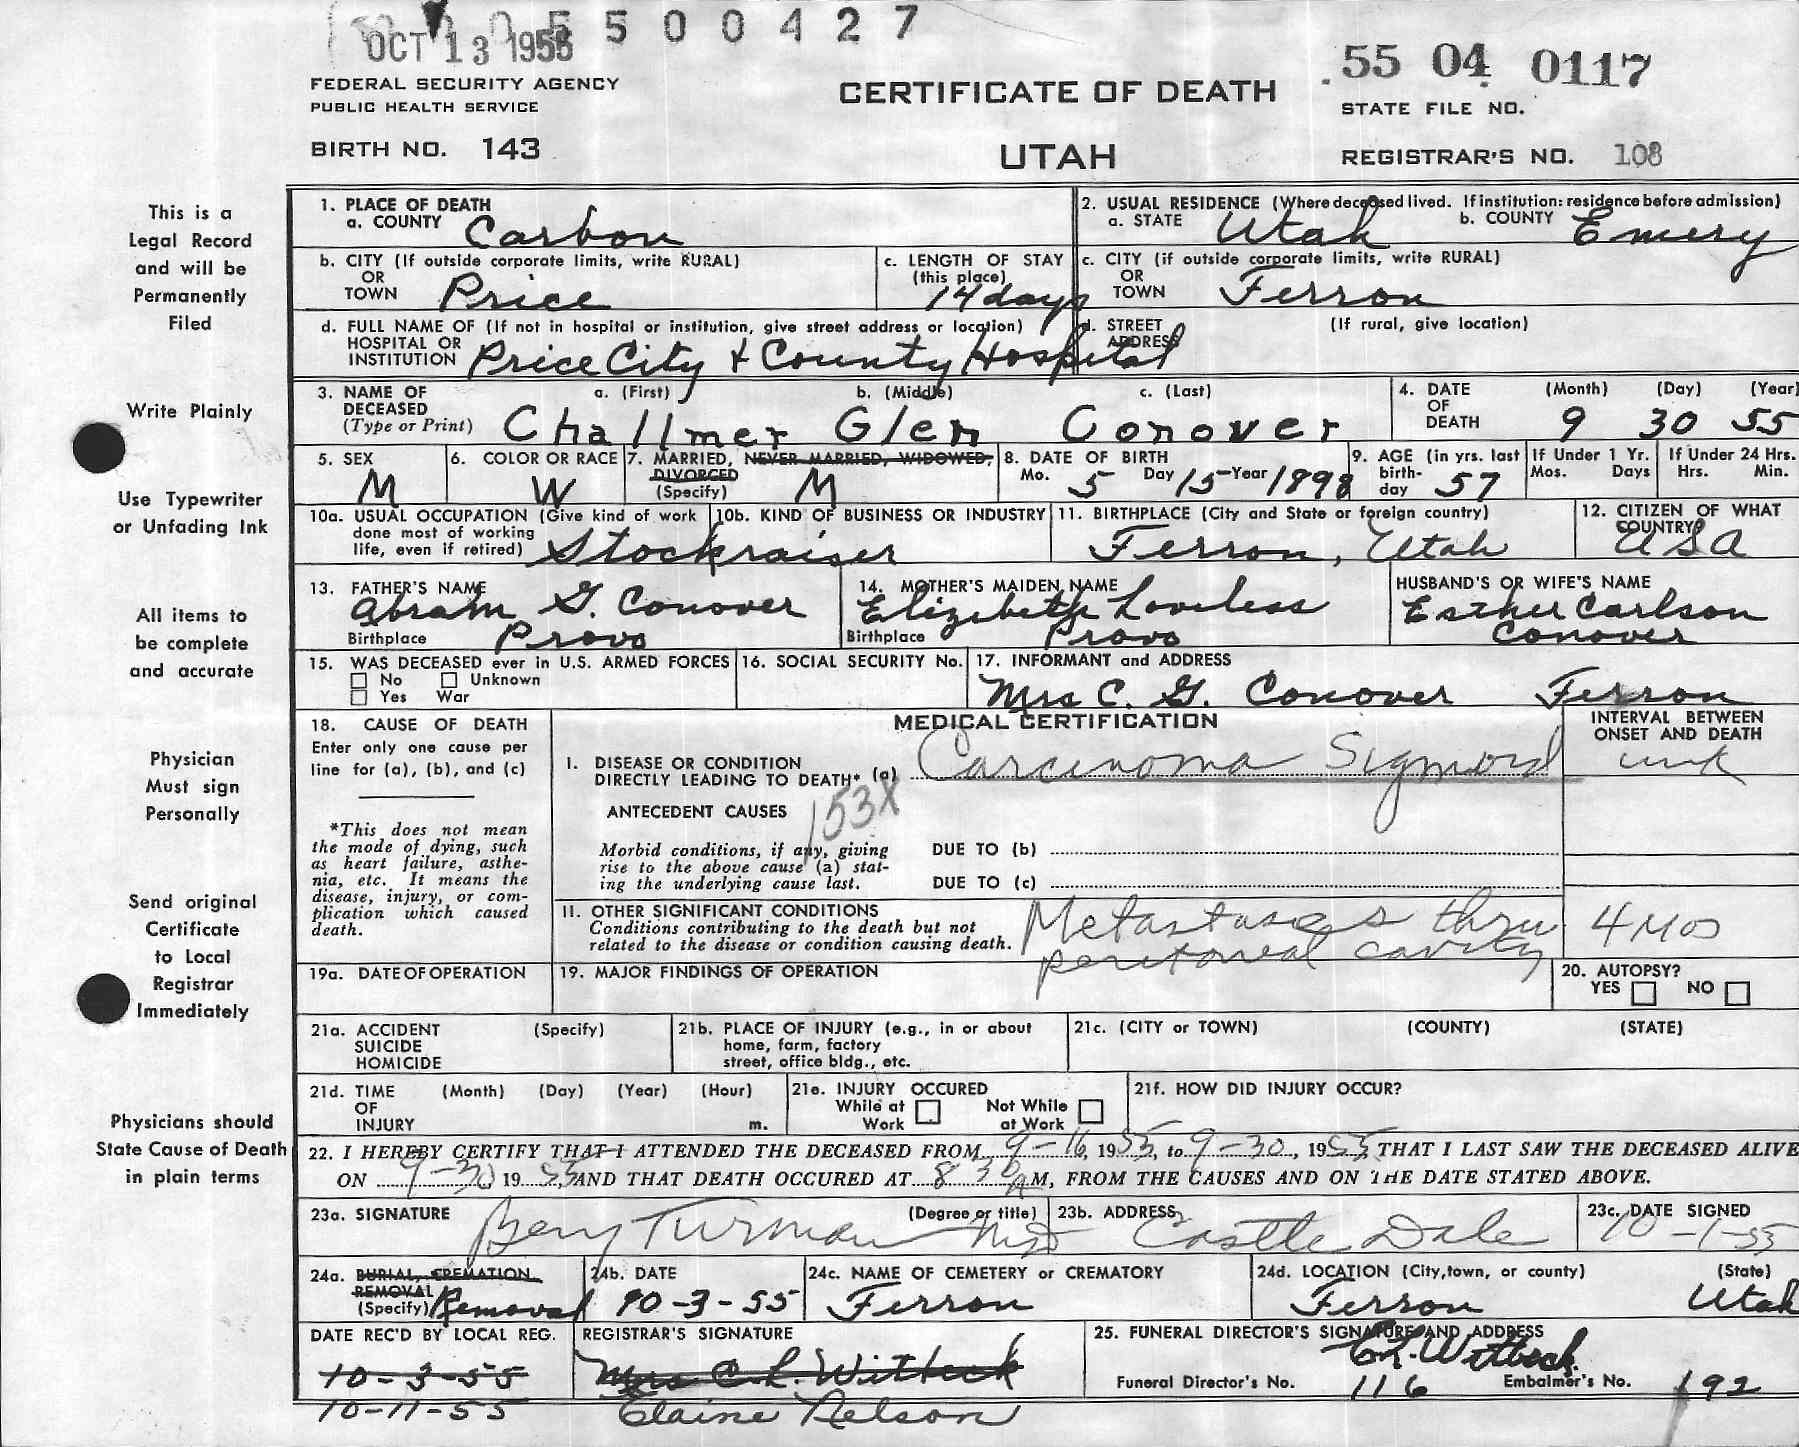 5500427
OCT 13 1955
55 04 0117
FEDERAL SECURITY AGENCY
PUBLIC HEALTH SERVICE
CERTIFICATE OF DEATH
STATE FILE NO.
BIRTH NO. 143
UTAH
REGISTRAR'S NO. 108
This is a
Legal Record
and will be
Permanently
Filed
Write Plainly
Use Typewriter
or Unfading Ink
All items to
be complete
and accurate
Physician
Must sign
Personally
Send original
Certificate
to Local
Registrar
Immediately
Physicians should
State Cause of Death
in plain terms
1. PLACE OF DEATH
a. COUNTY Carbon
2. USUAL RESIDENCE (Where deceased lived. If institution: residence before admission)
a. STATE Utah b. COUNTY Emery
b. CITY (If outside corporate limits, write RURAL)
OR
TOWN Price
c. LENGTH OF STAY
(this place)
14 days
c. CITY (if outside corporate limits, write RURAL)
OR
TOWN Ferron
d. FULL NAME OF (If not in hospital or institution, give street address or location)
HOSPITAL OR
INSTITUTION Price City & County Hospital
d. STREET (If rural, give location)
ADDRESS
3. NAME OF a. (First) b. (Middle) c. (Last)
DECEASED
(Type or Print) Challmer Glen Conover
4. DATE (Month) (Day) (Year)
OF
DEATH 9 30 55
5. SEX
M
6. COLOR OR RACE
W
7. MARRIED, NEVER MARRIED, WIDOWED,
DIVORCED
(Specify) M
8. DATE OF BIRTH
Mo. 5 Day 15 Year 1898
9. AGE (in yrs. last
birth-
day 57
If Under 1 Yr.
Mos. Days
If Under 24 Hrs.
Hrs. Min.
10a. USUAL OCCUPATION (Give kind of work
done most of working
life, even if retired) Stockraiser
10b. KIND OF BUSINESS OR INDUSTRY
11. BIRTHPLACE (City and State or foreign country)
Ferron, Utah
12. CITIZEN OF WHAT
COUNTRY?
USA
13. FATHER'S NAME
Abram G. Conover
Birthplace Provo
14. MOTHER'S MAIDEN NAME
Elizebeth Loveless
Birthplace Provo
HUSBAND'S OR WIFE'S NAME
Esther Carlson
Conover
15. WAS DECEASED ever in U.S. ARMED FORCES
No Unknown
Yes War
16. SOCIAL SECURITY No.
17. INFORMANT and ADDRESS
Mrs C. G. Conover Ferron
18. CAUSE OF DEATH
Enter only one cause per
line for (a), (b), and (c)
*This does not mean
the mode of dying, such
as heart failure, asthe-
nia, etc. It means the
disease, injury, or com-
plication which caused
death.
MEDICAL CERTIFICATION
INTERVAL BETWEEN
ONSET AND DEATH
I. DISEASE OR CONDITION
DIRECTLY LEADING TO DEATH* (a) Carcinoma Sigmoid unk
ANTECEDENT CAUSES 153X
Morbid conditions, if any, giving
rise to the above cause (a) stat-
ing the underlying cause last.
DUE TO (b)
DUE TO (c)
II. OTHER SIGNIFICANT CONDITIONS
Conditions contributing to the death but not
related to the disease or condition causing death.
Metastases thru
peritoneal cavity
4 mos
19a. DATE OF OPERATION
19. MAJOR FINDINGS OF OPERATION
20. AUTOPSY?
YES NO
21a. ACCIDENT (Specify)
SUICIDE
HOMICIDE
21b. PLACE OF INJURY (e.g., in or about
home, farm, factory
street, office bldg., etc.
21c. (CITY or TOWN) (COUNTY) (STATE)
21d. TIME (Month) (Day) (Year) (Hour)
OF
INJURY m.
21e. INJURY OCCURED
While at Not While
Work at Work
21f. HOW DID INJURY OCCUR?
22. I HEREBY CERTIFY THAT I ATTENDED THE DECEASED FROM 9-16, 1955, to 9-30, 1955 THAT I LAST SAW THE DECEASED ALIVE
ON 9-30 19 55 AND THAT DEATH OCCURED AT 8 30 AM, FROM THE CAUSES AND ON THE DATE STATED ABOVE.
23a. SIGNATURE (Degree or title)
Turman MD
23b. ADDRESS
Castle Dale
23c. DATE SIGNED
10-1-55
24a. BURIAL, CREMATION
REMOVAL
(Specify) Removal
24b. DATE
10-3-55
24c. NAME OF CEMETERY or CREMATORY
Ferron
24d. LOCATION (City, town, or county) (State)
Ferron Utah
DATE REC'D BY LOCAL REG.
10-3-55
10-11-55
REGISTRAR'S SIGNATURE
Mrs C. L. Witbeck
Elaine Nelson
25. FUNERAL DIRECTOR'S SIGNATURE AND ADDRESS
C. L. Witbeck
Funeral Director's No. 116 Embalmer's No. 192